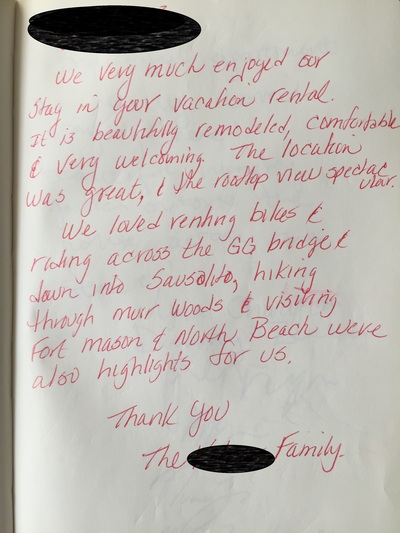 We very much enjoyed our
stay in your vacation rental.
It is beautifully remodeled, comfortable
& very welcoming. The location
was great, & the rooftop view spectac
ular.
We loved renting bikes &
riding across the GG bridge &
down into Sausolito, hiking
through muir Woods & visiting
Fort mason & North Beach were
also highlights for us.
Thank You
The Family.